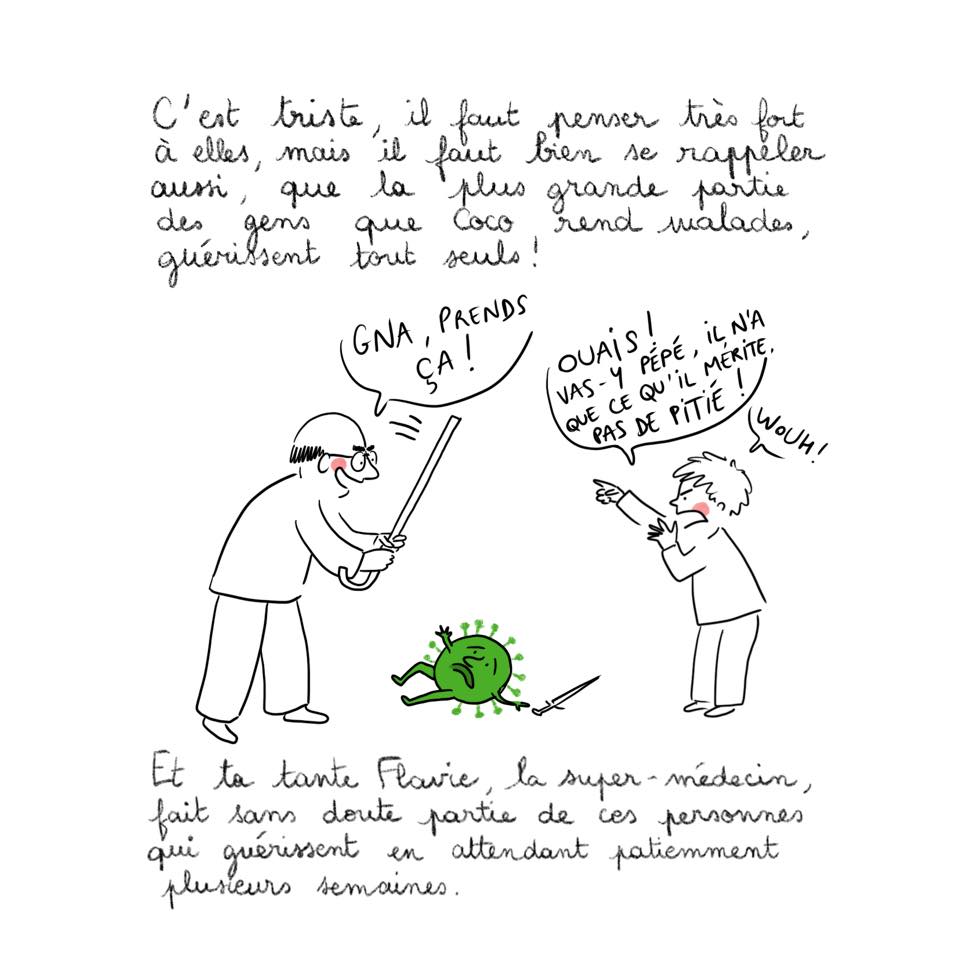 C'est triste, il faut penser très fort
à elles, mais il faut bien se rappeler
aussi, que la plus grande partie
des gens que Coco rend malades,
guérissent tout seuls !
GNA, PRENDS
ÇA !
OUAIS !
VAS-Y PÉPÉ, IL N'A
QUE CE QU'IL MÉRITE,
PAS DE PITIÉ !
WOUH !
Et ta tante Flavie, la super-médecin,
fait sans doute partie de ces personnes
qui guérissent en attendant patiemment
plusieurs semaines.